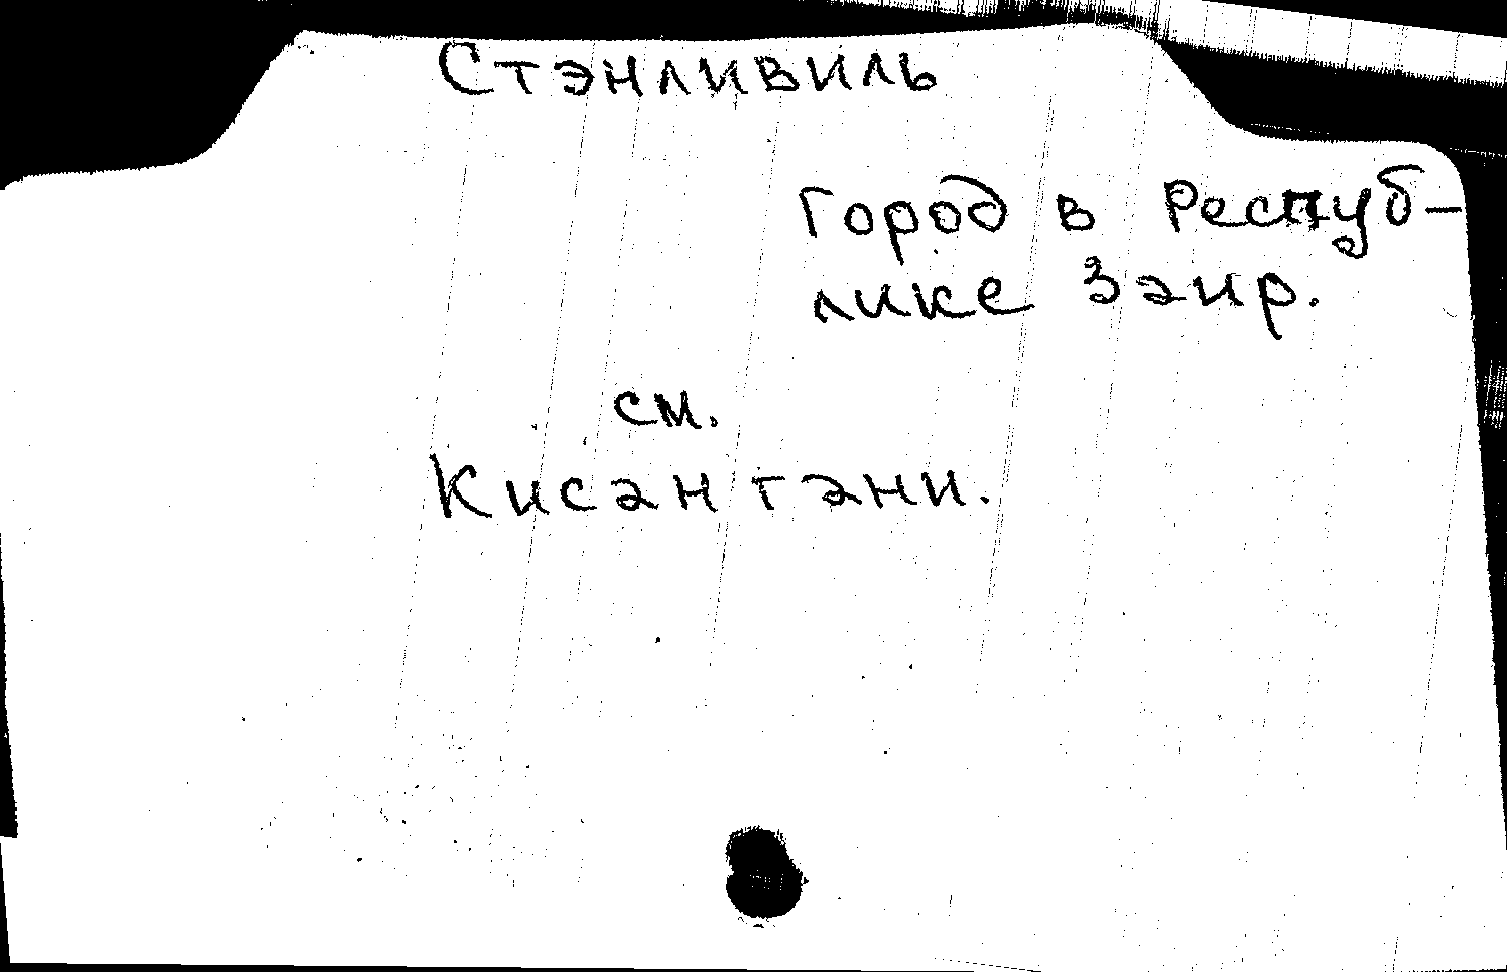 Стэнливиль
Город в Респуб-
лике Заир.
см.
Кисангани.